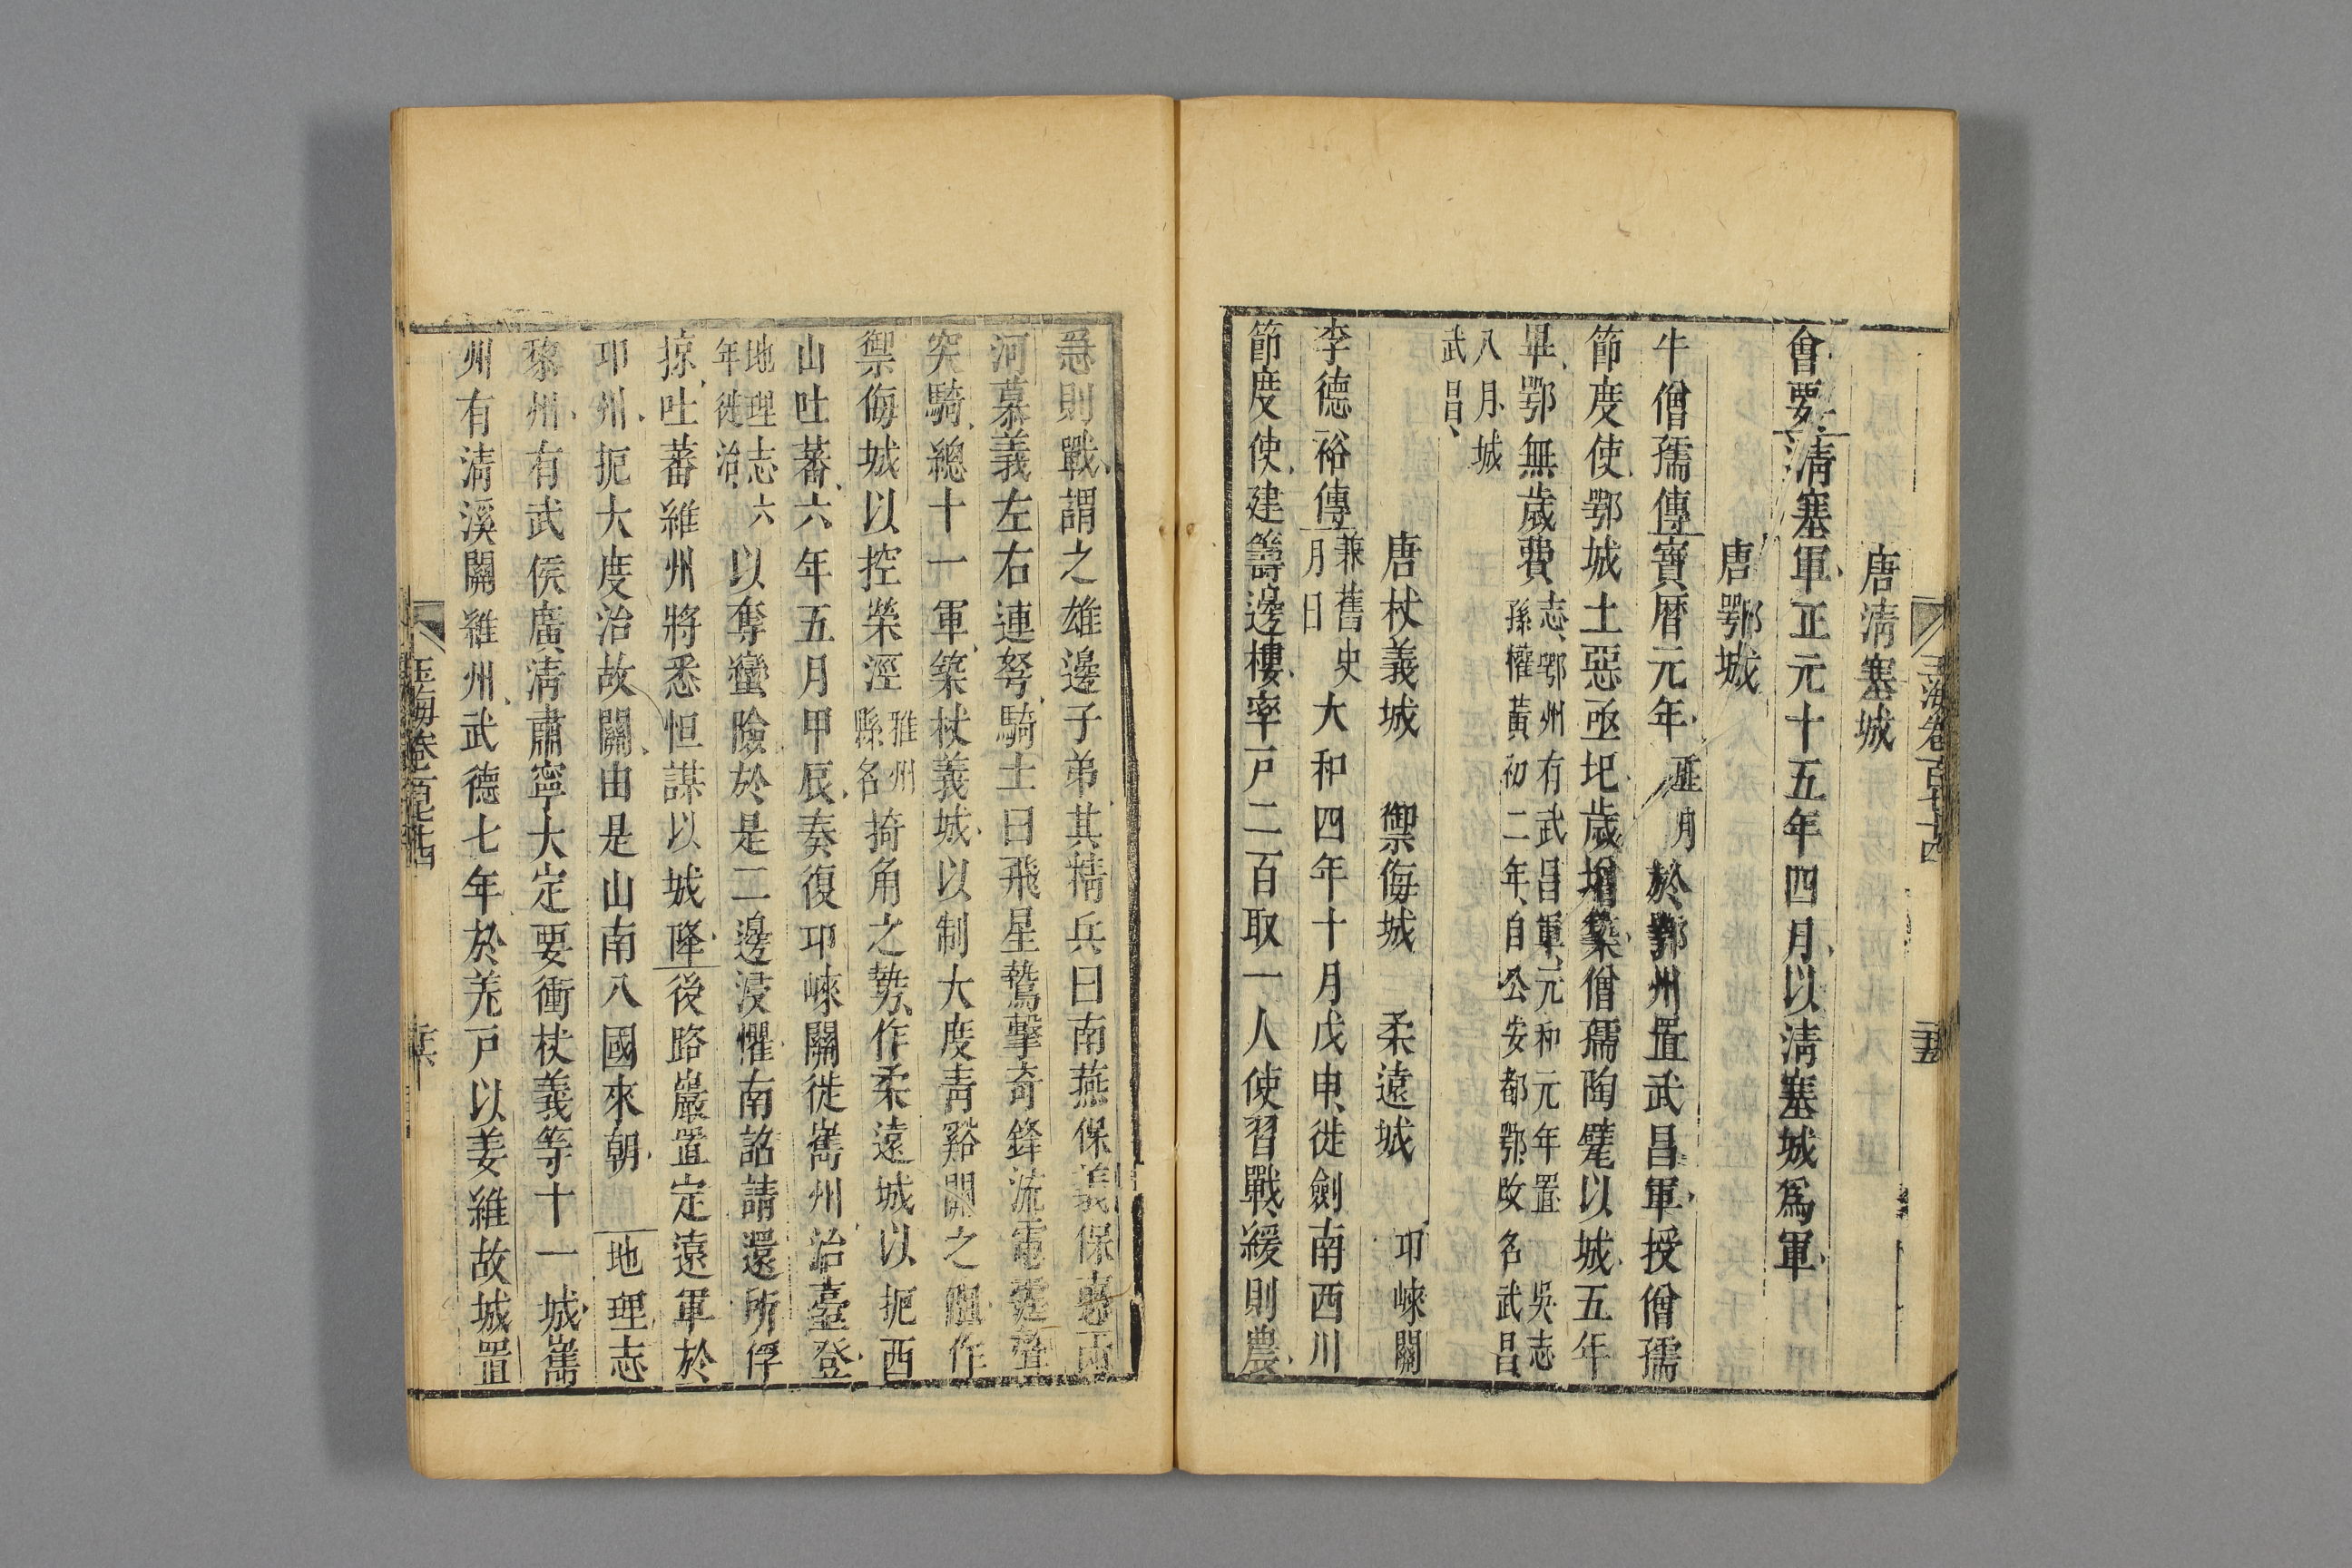 唐淸塞城
會要淸塞軍正元十五年四月以淸塞城爲軍
唐鄂城
牛僧孺傳寶曆元年正月於鄂州置武昌軍授僧孺
節度使鄂城土惡亟圯歲增築僧孺陶甓以城五年
畢鄂無歲費志鄂州有武昌軍元和元年置吳志
孫權黃初二年自公安都鄂改名武昌
八月城
武昌
唐杖義城 禦侮城 柔遠城 卭崍關
李德裕傳兼舊史
月日大和四年十月戊申徙劍南西川
節度使建籌邊樓率戸二百取一人使習戰緩則農
急則戰謂之雄邊子弟其精兵曰南燕保義保惠兩
河慕義左右連弩騎士曰飛星鷙擊奇鋒流電霆聲
突騎總十一軍築杖義城以制大度靑谿關之阻作
禦侮城以控榮涇雅州
縣名掎角之勢作柔遠城以扼西
山吐蕃六年五月甲辰奏復卭崍關徙嶲州治臺登
地理志六
年徙治以奪蠻險於是二邊浸懼南詔請還所俘
掠吐蕃維州將悉怛謀以城降後路巖置定遠軍於
卭州扼大度治故關由是山南八國來朝 地理志
黎州有武侯廣淸肅寧大定要衝杖義等十一城嶲
州有淸溪關維州武德七年於羌戸以姜維故城置
玉海卷百七十四
二十五
玉海卷百七十四